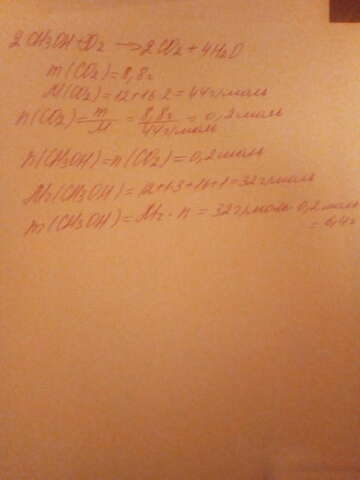 2CH3OH+O2 → 2CO2+4H2O
m(CO2)=8,8г
M(CO2)=12+16·2=44г/моль
n(CO2)=m/M=8,8г/44г/моль=0,2моль
n(CH3OH)=n(CO2)=0,2моль
Mr(CH3OH)=12+1·3+16+1=32г/моль
m(CH3OH)=Mr·n=32г/моль·0,2моль
=6,4г